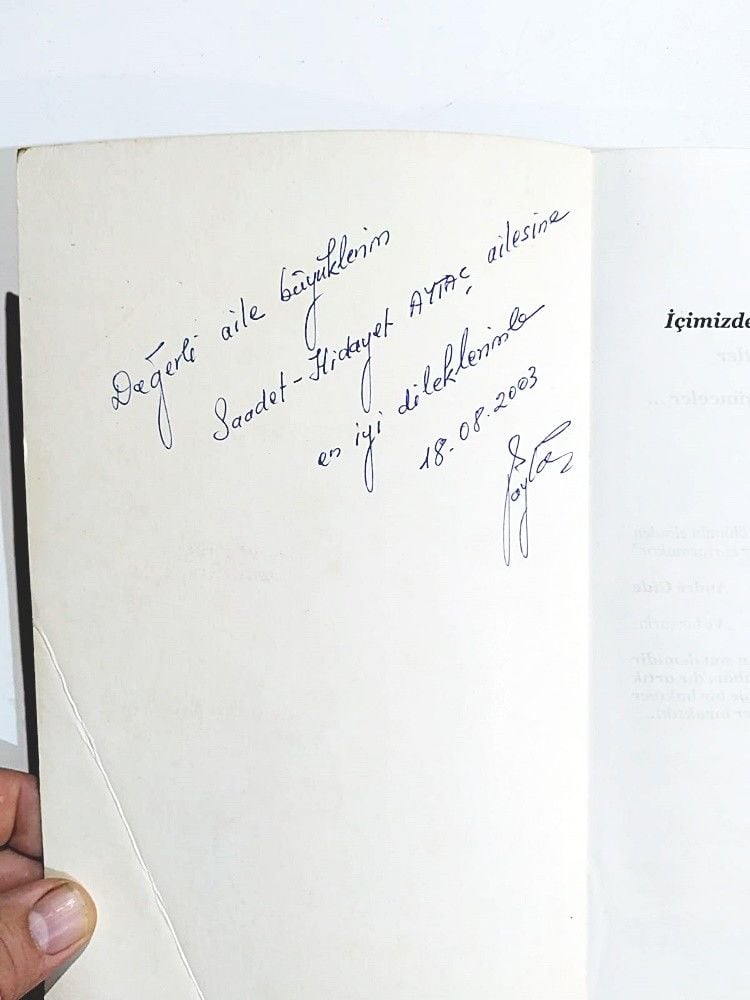 Değerli aile büyüklerim
Saadet-Hidayet AYTAÇ ailesine
en iyi dileklerimle
18.08.2003
İçimizde